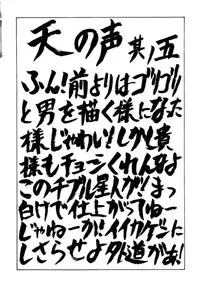 天の声 其ノ五
ふん!前よりはゴリゴリ
と男を描く様になった
様じゃわい!しかし貴
様もチョーシくれんなよ
このチブル星人が!!まっ
白けで仕上がってねー
じゃねーか!!イイカゲンに
しさらせよ外道がぁ!